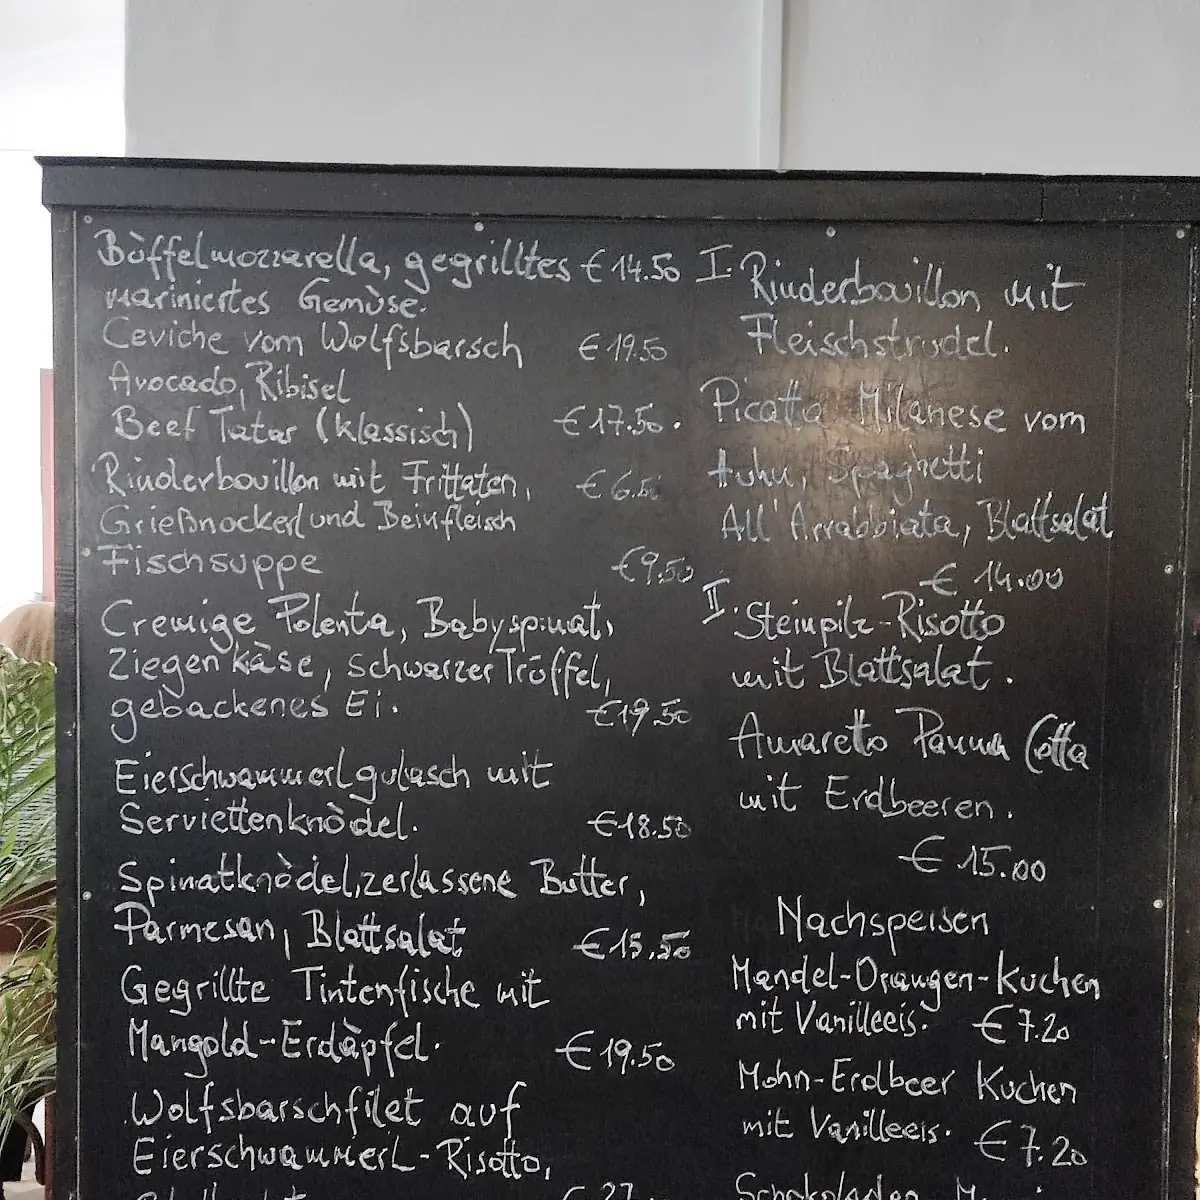 Büffelmozzarella, gegrilltes € 14.50
mariniertes Gemüse.
Ceviche vom Wolfsbarsch € 19.50
Avocado, Ribisel
Beef Tatar (klassisch) € 17.50.
Rinderbouillon mit Frittaten, € 6.50
Grießnockerl und Beinfleisch
Fischsuppe € 9.50
Cremige Polenta, Babyspinat,
Ziegenkäse, schwarzer Trüffel,
gebackenes Ei. € 19.50
Eierschwammerlgulasch mit
Serviettenknödel. € 18.50
Spinatknödel, zerlassene Butter,
Parmesan, Blattsalat € 15.50
Gegrillte Tintenfische mit
Mangold-Erdäpfel. € 19.50
Wolfsbarschfilet auf
Eierschwammerl-Risotto,
I. Rinderbouillon mit
Fleischstrudel.
Picatta Milanese vom
Huhn, Spaghetti
All'Arrabbiata, Blattsalat
€ 14.00
II. Steinpilz-Risotto
mit Blattsalat.
Amaretto Panna Cotta
mit Erdbeeren.
€ 15.00
Nachspeisen
Mandel-Orangen-Kuchen
mit Vanilleeis. € 7.20
Mohn-Erdbeer Kuchen
mit Vanilleeis. € 7.20